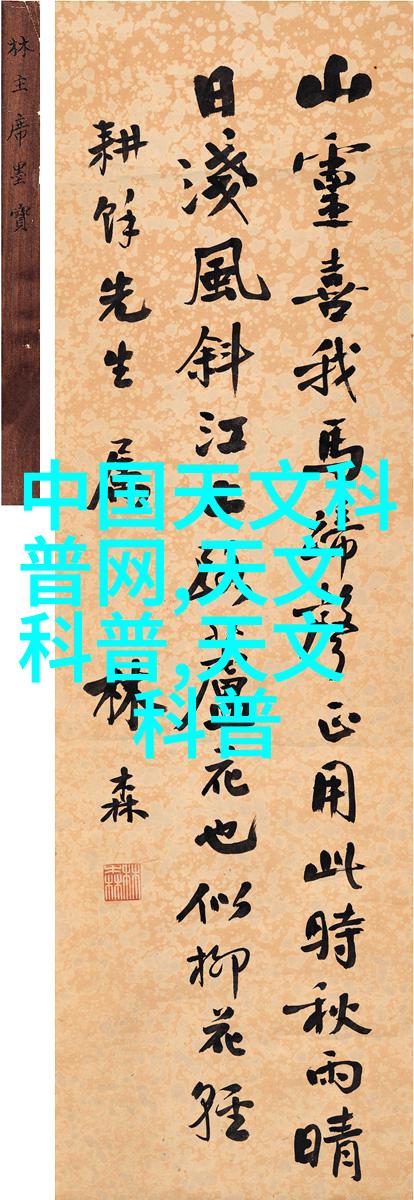 山靈喜我馬蹄聲正用此時秋雨晴
日淺風斜江上路蘆花也似柳花輕
耕餘先生屬
林森
林主席墨寶
中国天文科
普网,天文
科普,天文
科普